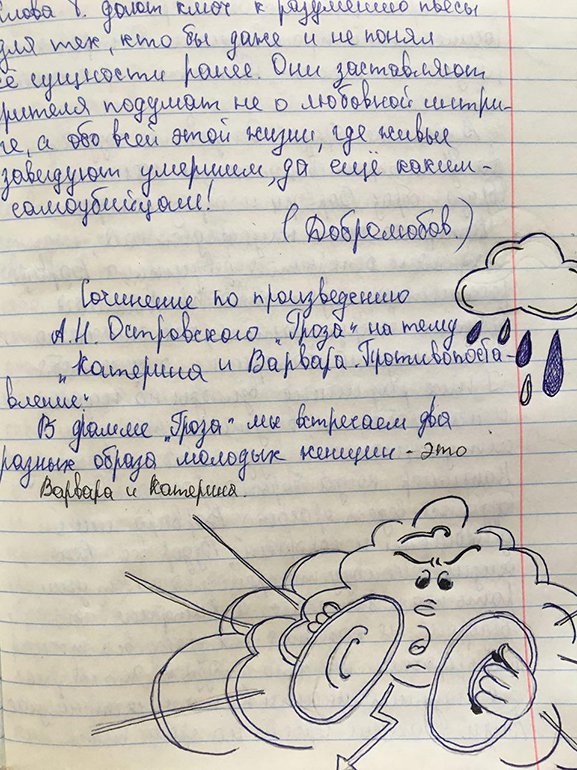 слова т. далат ключ к разумению пьесы
для тех, кто бы даже и не понял
её сущности ранее. Они заставляют
зрителя подумат не о любовной интри-
ге, а обо всей этой жизни, где живые
завидуют умершим, да ещё каким -
самоубийцам!
(Добролюбов.)
Сочинение по произведению
А.Н. Островского „Гроза“ на тему
„Катерина и Варвара. Противопоста-
вление“.
В драмме „Гроза“ мы встречаем два
разных образа молодых женщин - это
Варвара и Катерина.